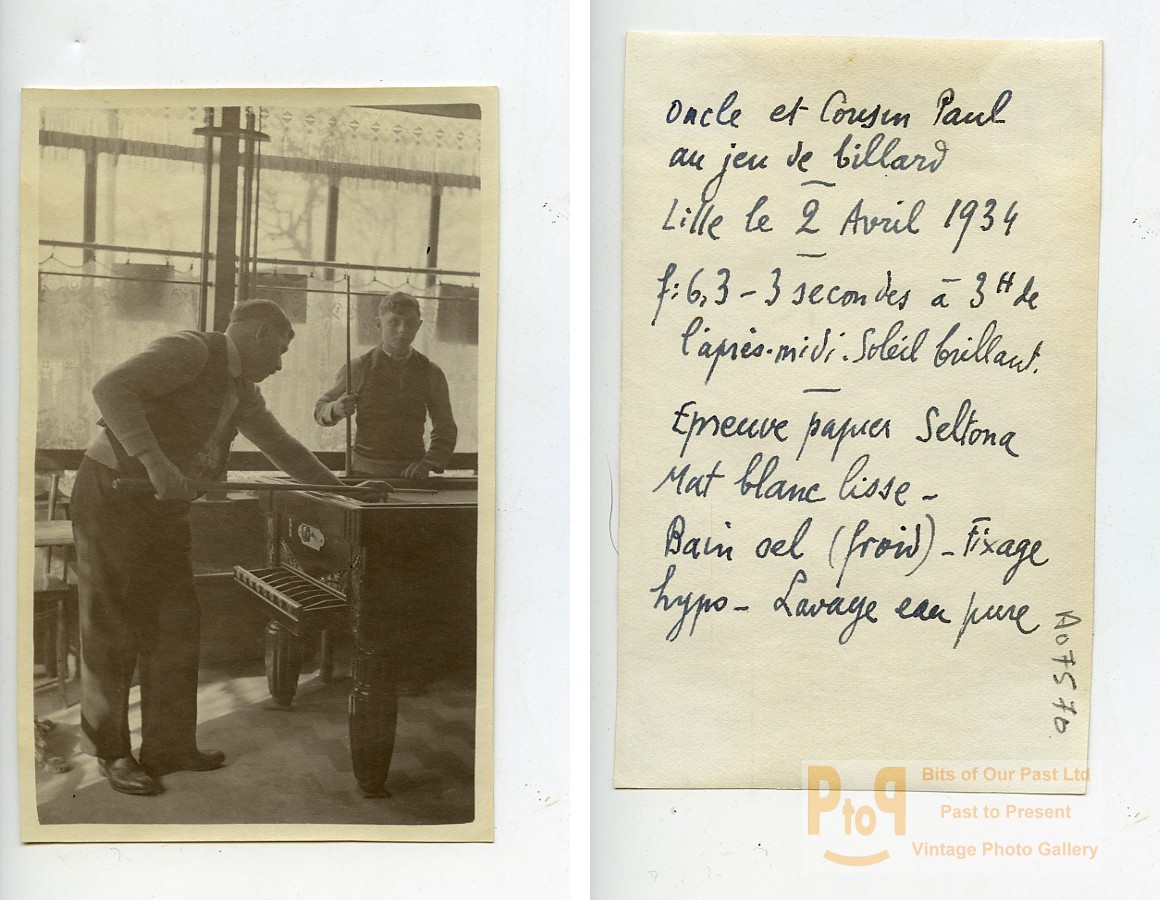 Oncle et Cousin Paul
au jeu de billard
Lille le 2 Avril 1934
f:6,3 - 3 secondes à 3H de
l'après-midi. Soleil brillant.
Epreuve papier Seltona
Mat blanc lisse -
Bain sel (froid) - Fixage
hypo - Lavage eau pure
A07570
PtoP
Bits of Our Past Ltd
Past to Present
Vintage Photo Gallery